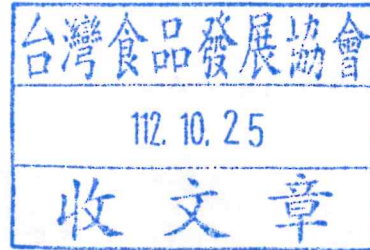 台灣食品發展協會
112.10.25
收文章